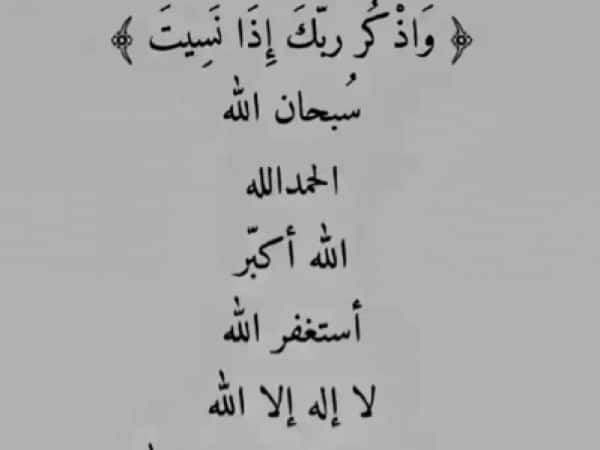 ﴿ وَاذْكُر ربّكَ إِذَا نَسِيتَ ﴾
سُبحان الله
الحمدالله
الله أكبّر
أستغفر الله
لا إله إلا الله